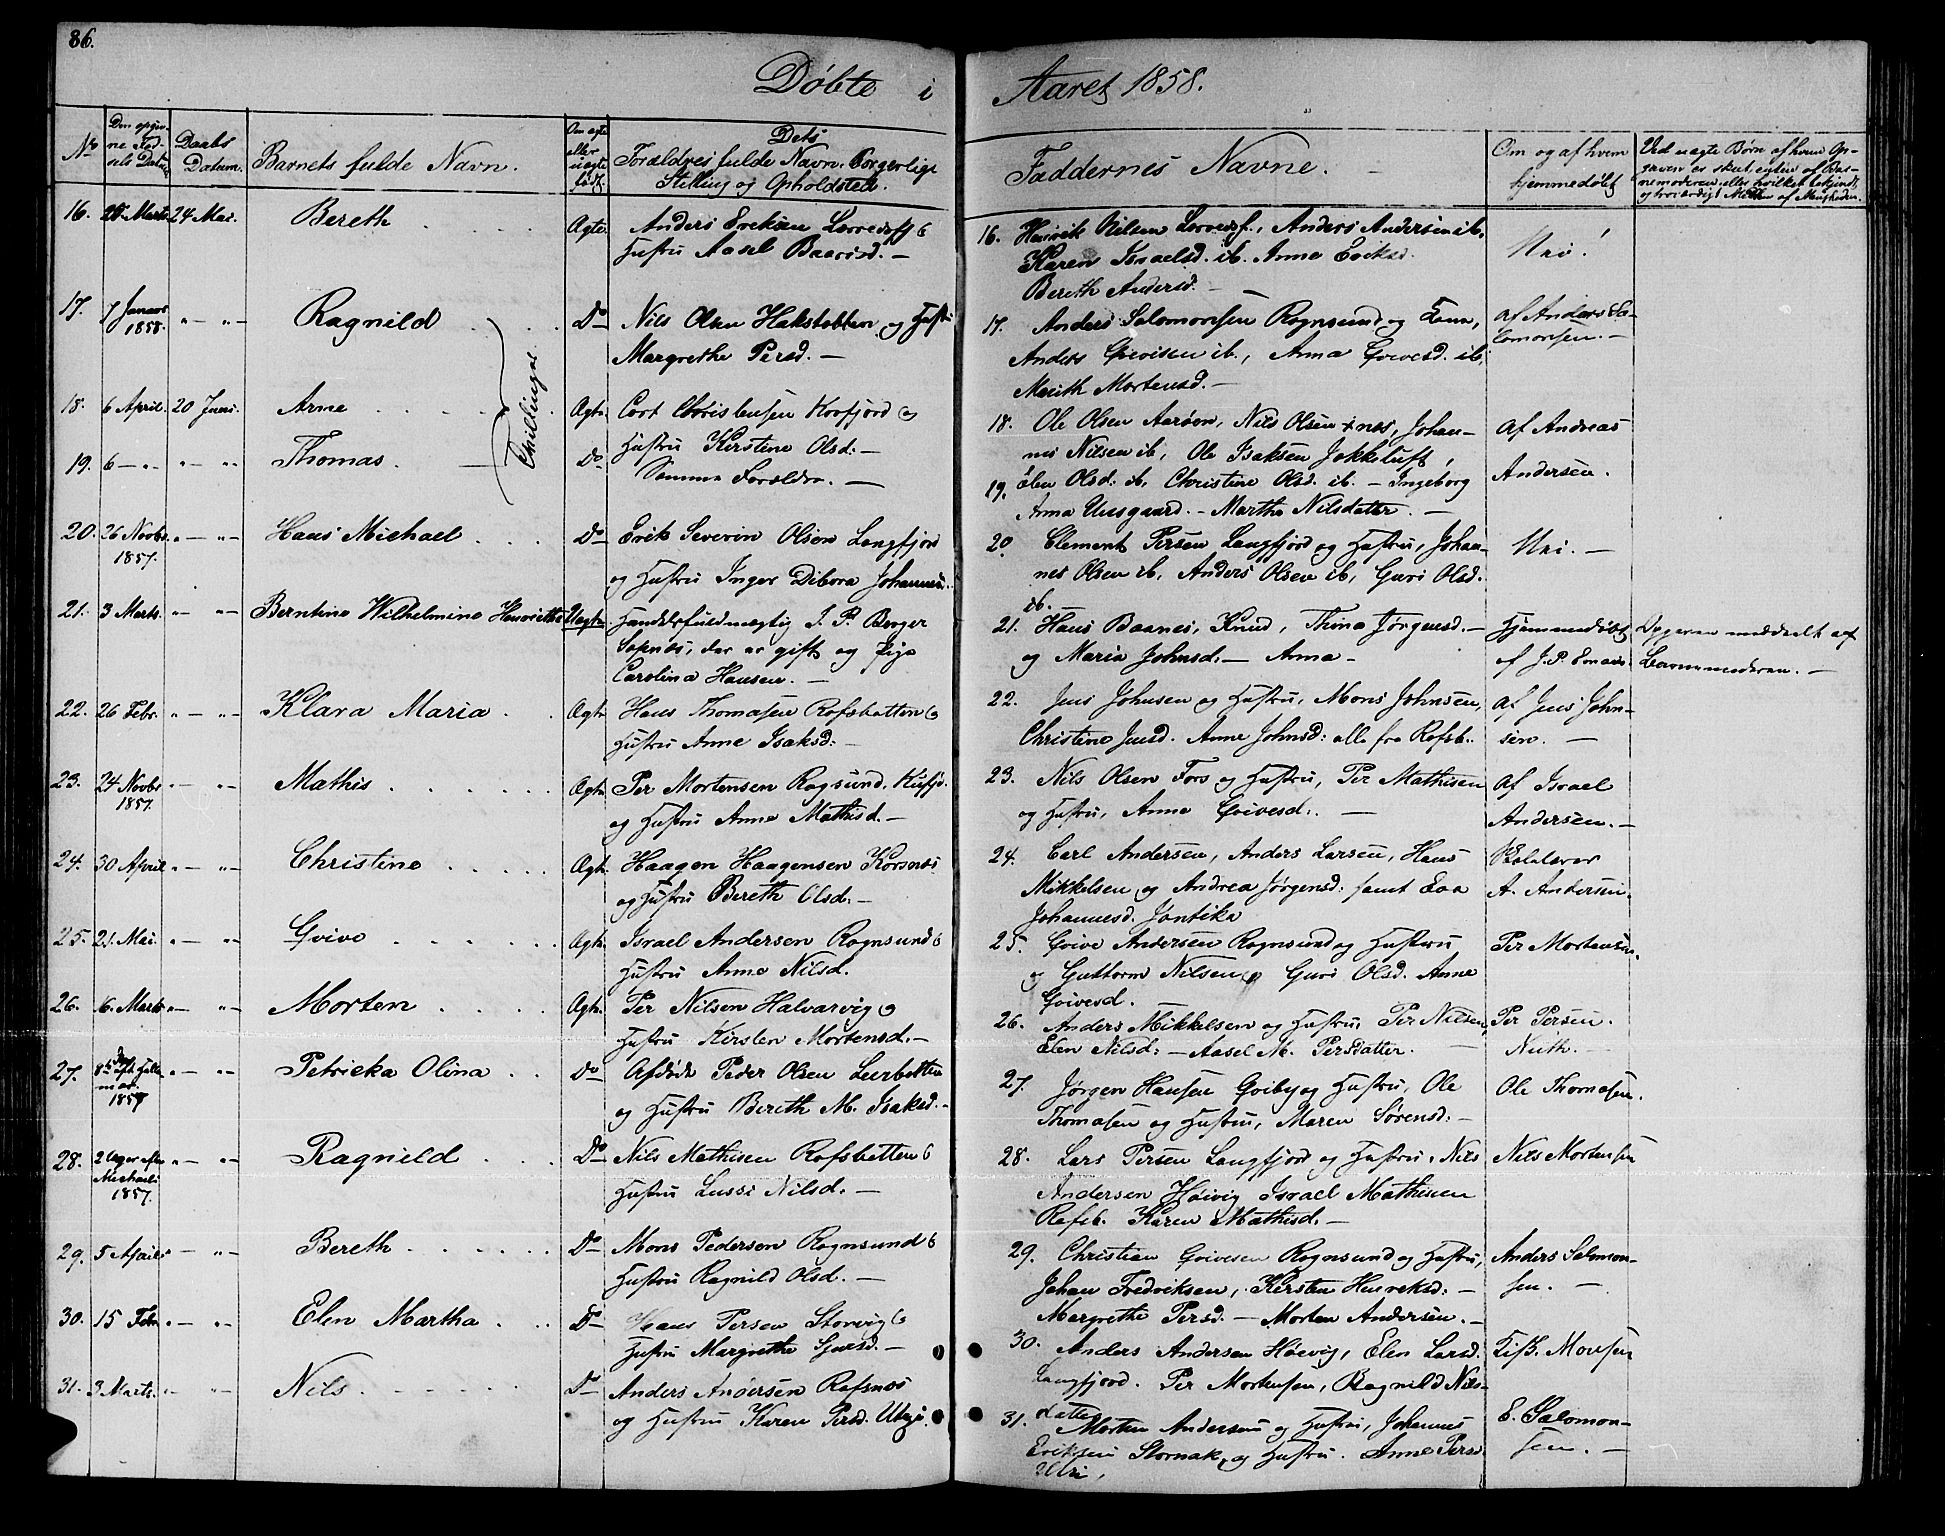 86.
Döbte i Aaret 1858.
No
Den opgivne Fødsels Datum
Daabs Datum.
Barnets fulde Navn.
Om ægte eller uægte født.
Dets Forældres fulde Navn, Borgerlige Stilling og Opholdsted.
Faddernes Navne.
Om og af hvem hjemmedøbt
Ved uægte Børn af hvem Opgaven er skeet, enten af Barnemoderen, eller hvilket bekjendt og troværdigt Medlem af Menigheden.
16. Marts 24 Mai. Bereth Ægte Anders Eriksen Lerresfj. &
Hustru Aasel Baarisd. —
16. Henrik Nilsen Lerresf., Anders Andersen ib.
Karen Israelsd. ib. Anne Eriksd.
Bereth Andersd. —
Nei!
17. 7 Januar 1858. „ — „ — Ragnild Do Nils Olsen Hakstabben og Hustru
Margrethe Persd. —
17. Anders Salomonsen Rognsund og Kone,
Anders Gvivisen ib., Anna Gvivesd. ib,
Marith Mortensd. —
af Anders Salomonsen. —
18. 6 April. 20 Juni. Arne Ægte Cort Christensen Korfjord og
Hustru Kirstine Olsd. —
Tvillinger.
19. 6 — „ — „ — „ Thomas. Do Samme Forældre. —
18. Ole Olsen Aarøen, Nils Olsen nes, Johan-
nes Nilsen ib, Ole Isaksen Jøkkeluft,
19. Elen Olsd. ib, Christine Olsd. ib. — Ingeborg
Anna Uusgaard. — Martha Nilsdatter. —
af Andreas
Andersen.
20. 26 Novbr 1857. „ — „ — Hans Michael Do Erik Severin Olsen Langfjord
og Hustru Inger Dibora Johannes.
20. Clement Persen Langfjord og Hustru, Johan-
nes Olsen ib, Anders Olsen ib, Guri Olsd.
ib. —
Nei. —
21. 3 Marts. „ — „ — Berntine Wilhelmine Henriette Uægte Handelsfuldmægtig J. P. Berger
Sopnæs, der er gift og Pige
Carolina Hansen. —
21. Hans Baanes, Knud, Thina Jørgensd. —
og Maria Johnsd. — Anna —
Hjemmedøbt
af J. P.
Opgaven meddeelt af
Barnemoderen. —
22. 26 Febr. „ — „ — Klara Maria Ægte Hans Thomasen Rafsbotten &
Hustru Anne Isaksd: —
22. Jens Johnsen og Hustru, Mons Johnsen,
Christine Jensd. Anne Johnsd: alle fra Rafsb.
af Jens John-
sen. —
23. 24 Novbr 1857. „ — „ — Mathis Ægte Per Mortensen Rogsund, Kufjo.
og Hustru Anne Mathisd. —
23. Nils Olsen Fors og Hustru, Per Mathisen
og Hustru, Anne Gvivesd: —
af Israel
Andersen. —
24. 30 April „ — „ — Christine Ægte Haagen Haagensen Korsnæs
og Hustru Bereth Olsd. —
24. Carl Andersen, Anders Larsen, Hans
Mikkelsen og Andrea Jørgensd: samt Eva
Johannesd. Jantika
Skolelærer
A. Andersen.
25. 21. Mai. „ — „ — Gvive Ægte Israel Andersen Rognsund &
Hustru Anne Nilsd.
25. Gvive Andersen Rognsund og Hustru
og Guttorm Nilsen og Guri Olsd. Anne
Gvivesd.
Per Mortensen.
26. 6. Marts „ — „ — Morten Ægte Per Nilsen Halvarvig &
Hustru Kirsten Mortensd. —
26. Anders Mikkelsen og Hustru, Per Nilsen,
Elen Nilsd: — Aasel M. Persdatter. —
Per Persen.
27. 8de Dag aft. 1857 „ — „ — Petricka Olina Do Afdøde Peder Olsen Leerbotten
og Hustru Bereth M. Isaksd. —
27. Jørgen Hansen Qviby og Hustru, Ole
Thomasen og Hustru, Maren Sørensd: —
Ole Thomasen.
28. 2 Uger efter Michaeli 1857. „ — „ — Ragnild Do Nils Mathisen Rafsbotten &
Hustru Lussi Nilsd. —
28. Lars Persen Langfjord og Hustru, Nils
Andersen Høivig Israel Mathisen
Rafsb. Karen Mathisd. —
Nils Mortensen
29. 5 April „ — „ — Bereth Do Mons Pedersen Rognsund &
Hustru Ragnild Olsd. —
29. Christian Gvivesen Rognsund og Hustru,
Johan Fredriksen, Kirsten Henriksd: —
Margrethe Persd. — Morten Andersen. —
Anders Salomon-
sen. —
30. 15 Febr. „ — „ — Elen Martha Do Hans Persen Storvig &
Hustru Margrethe Sjursd. —
30. Anders Andersen Høevig, Elen Larsd.
Langfjord. Per Mortensen, Ragnild Nils-
datter
Monsen
31. 3 Marts. „ — „ — Nils Do Anders Andersen Rafsnæs
og Hustru Karen Persd.
31. Morten Andersen og Hustru, Johannes
Eriksen Stornæk, og Hustru. Anne Persd.
E. Salomon-
sen. —